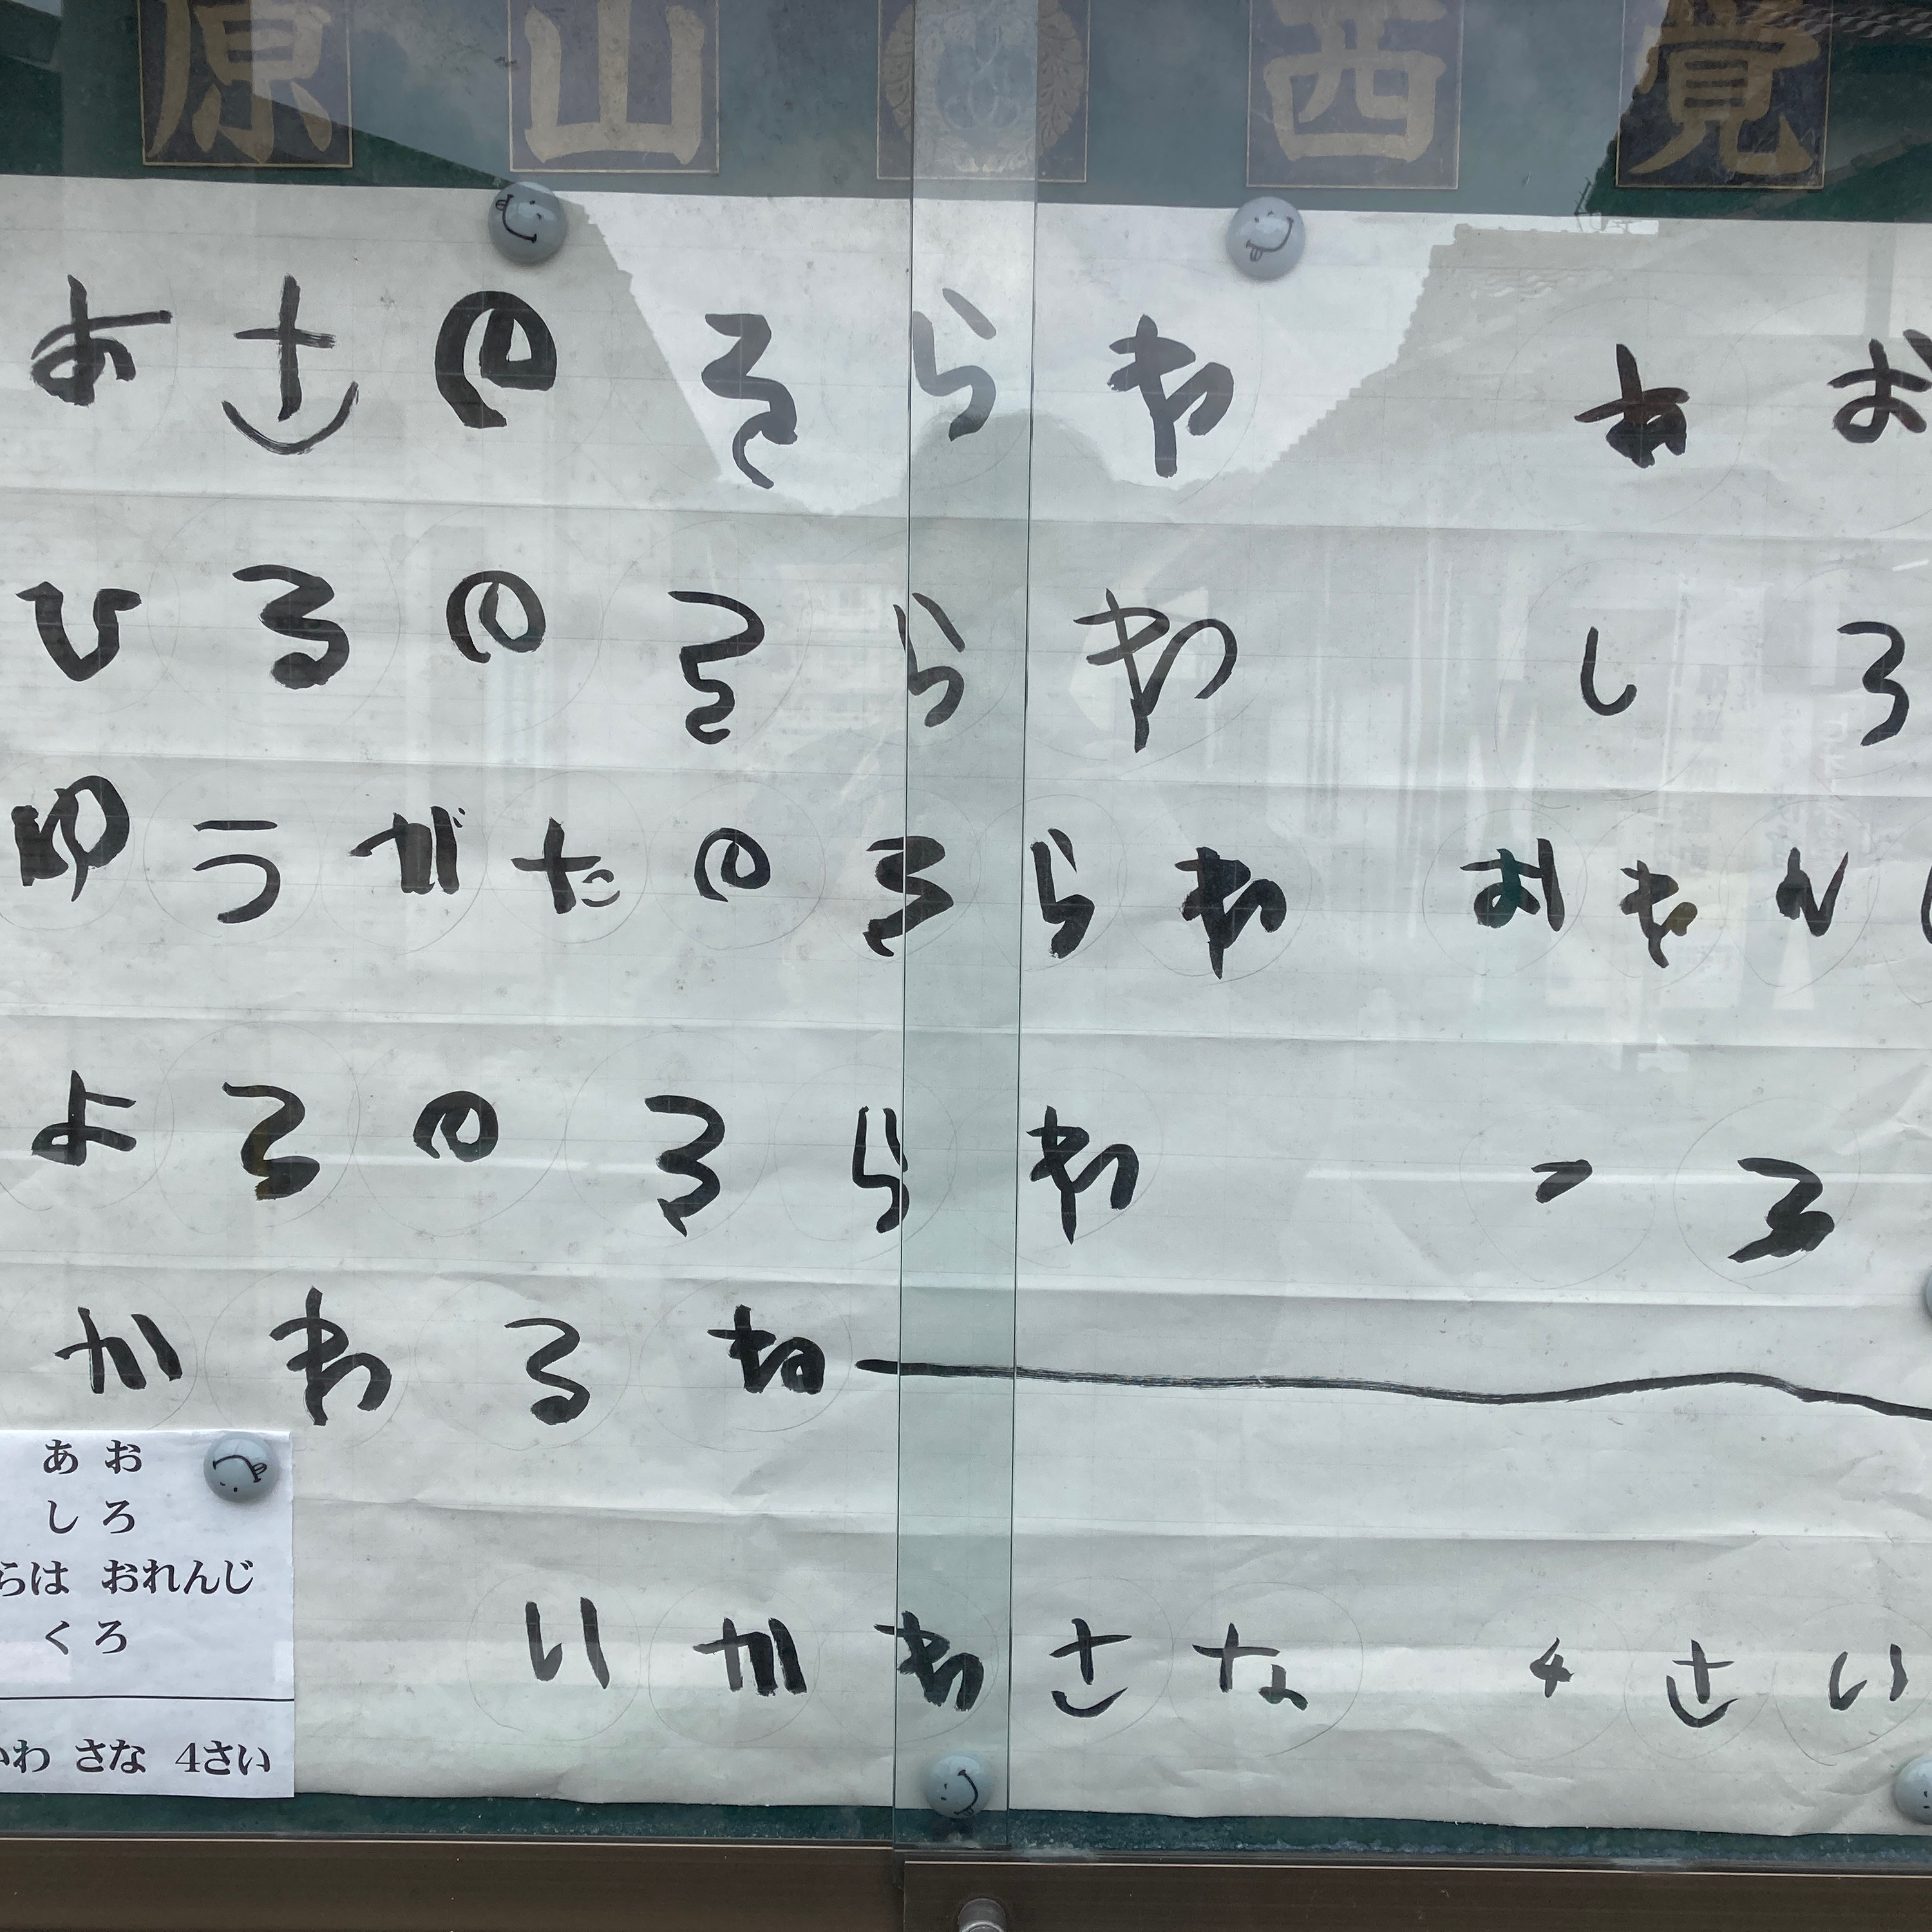 原山 西覚
あさのそらわ あお
ひるのそらわ しろ
ゆうがたのそらわ おれん
よるのそらわ くろ
かわるねー
いかわさな 4さい
あお
しろ
らは おれんじ
くろ
かわ さな 4さい